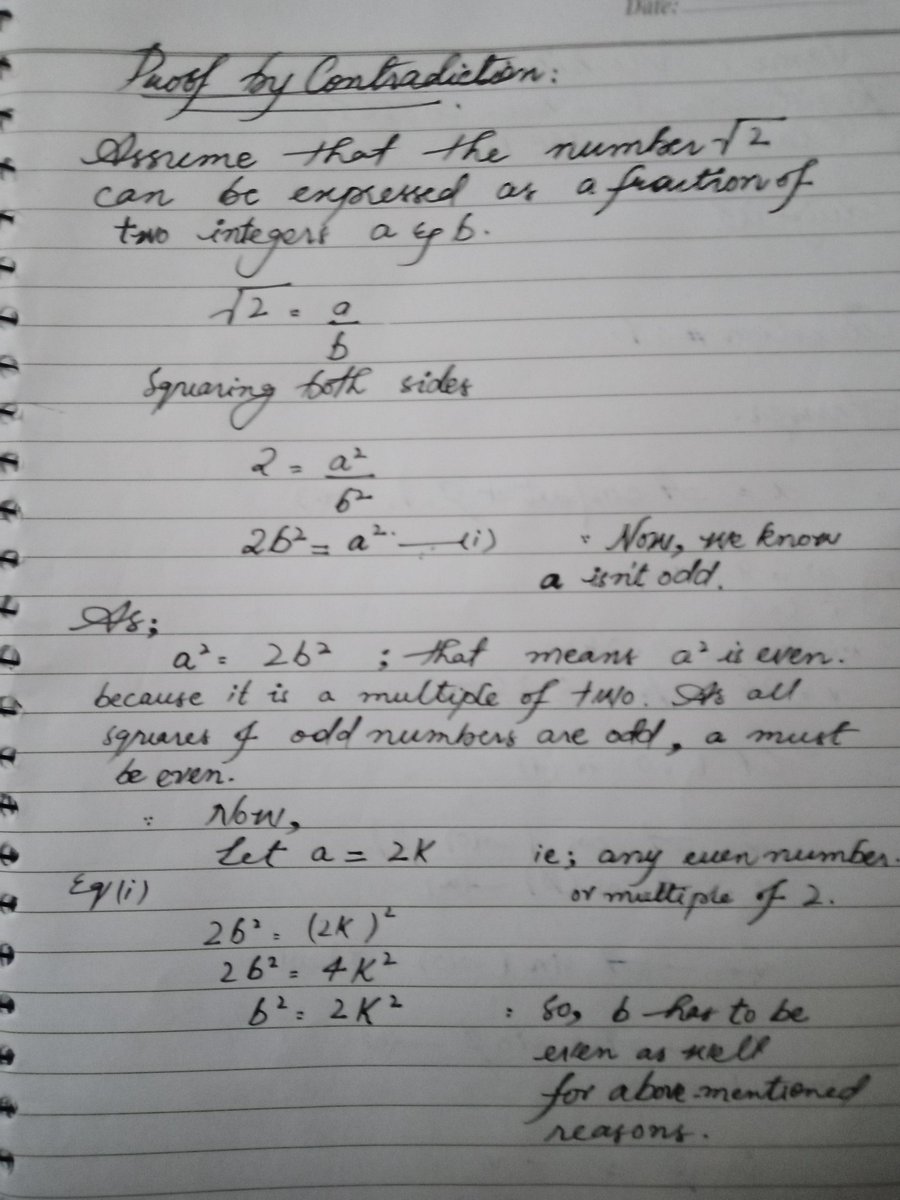 Date:
Proof by Contradiction:
Assume that the number √2
can be expressed as a fraction of
two integers a & b.
√2 = a/b
Squaring both sides
2 = a²/b²
2b² = a² —(i) : Now, we know
a isn't odd.
As;
a² = 2b² ; that means a² is even.
because it is a multiple of two. As all
squares of odd numbers are odd, a must
be even.
: Now,
Let a = 2K ie; any even number.
Eq(i) or multiple of 2.
2b² = (2K)²
2b² = 4K²
b² = 2K² : So, b has to be
even as well
for above-mentioned
reasons.